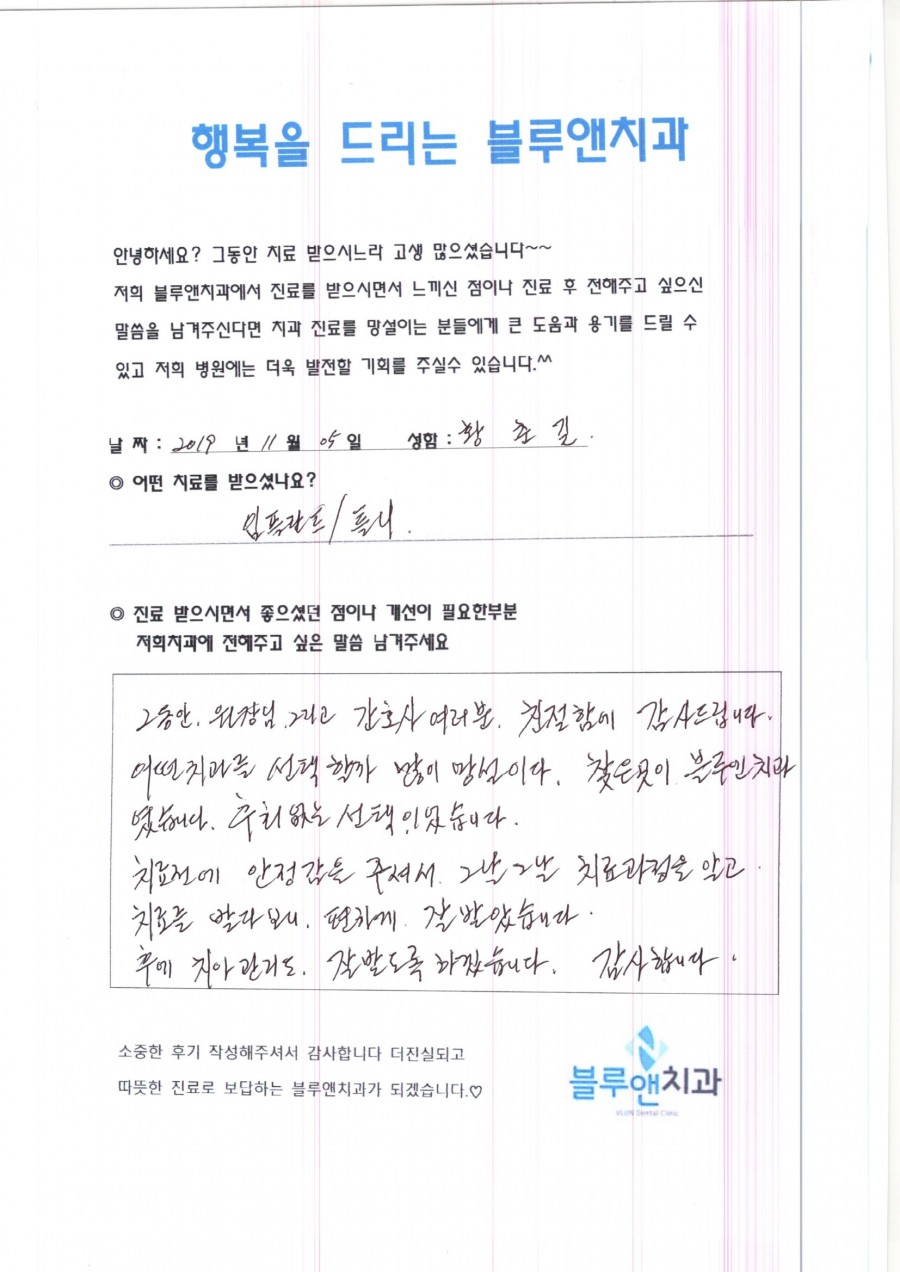 행복을 드리는 블루앤치과
안녕하세요? 그동안 치료 받으시느라 고생 많으셨습니다~~
저희 블루앤치과에서 진료를 받으시면서 느끼신 점이나 진료 후 전해주고 싶으신
말씀을 남겨주신다면 치과 진료를 망설이는 분들에게 큰 도움과 용기를 드릴 수
있고 저희 병원에는 더욱 발전할 기회를 주실수 있습니다.^^
날 짜 : 2019 년 11 월 05 일 성함 : 황 춘 길.
◎ 어떤 치료를 받으셨나요?
임플란트 / 틀니.
◎ 진료 받으시면서 좋으셨던 점이나 개선이 필요한부분
저희치과에 전해주고 싶은 말씀 남겨주세요
그동안. 원장님, 그리고 간호사 여러분. 친절함에 감사드립니다.
어떤치과를 선택할까 많이 망설이다. 찾은곳이 블루앤치과
였습니다. 후회없는 선택이였습니다.
치료전에 안정감을 주셔서. 그날그날 치료과정을 알고.
치료를 받다보니. 편하게. 잘받았습니다.
후에 치아관리도. 잘받도록 하겠습니다. 감사합니다.
소중한 후기 작성해주셔서 감사합니다 더진실되고
따뜻한 진료로 보답하는 블루앤치과가 되겠습니다.♡
블루앤치과
Dental Clinic